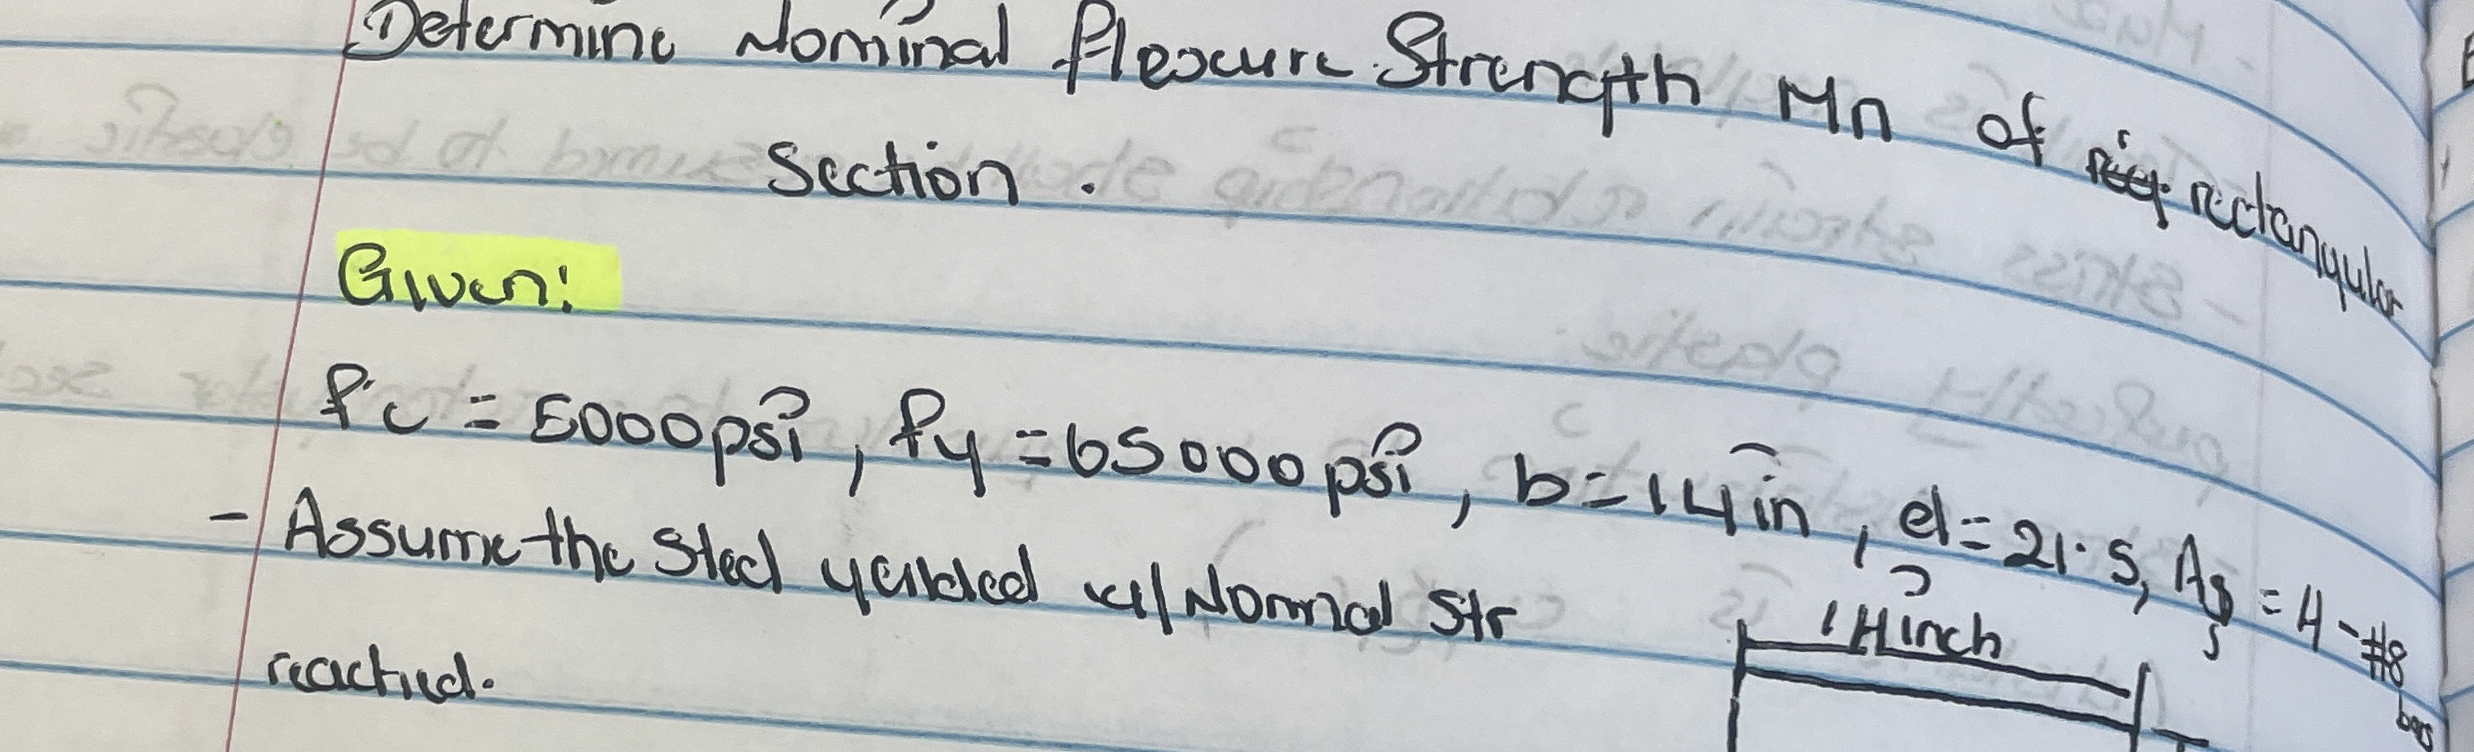 Determine Nominal flexure Strength Mn of rectangular
Section.
Given:
f'c = 5000psi, fy = 65000psi, b=14in, d=21.5, As = 4-#8 bars
- Assume the Steel yeilded w/ Nominal Str
reached.
14inch